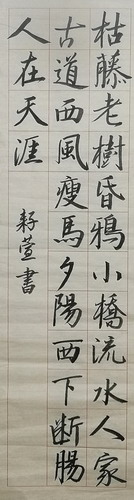 枯藤老樹昏鴉小橋流水人家
古道西風瘦馬夕陽西下断腸
人在天涯
籽萱書